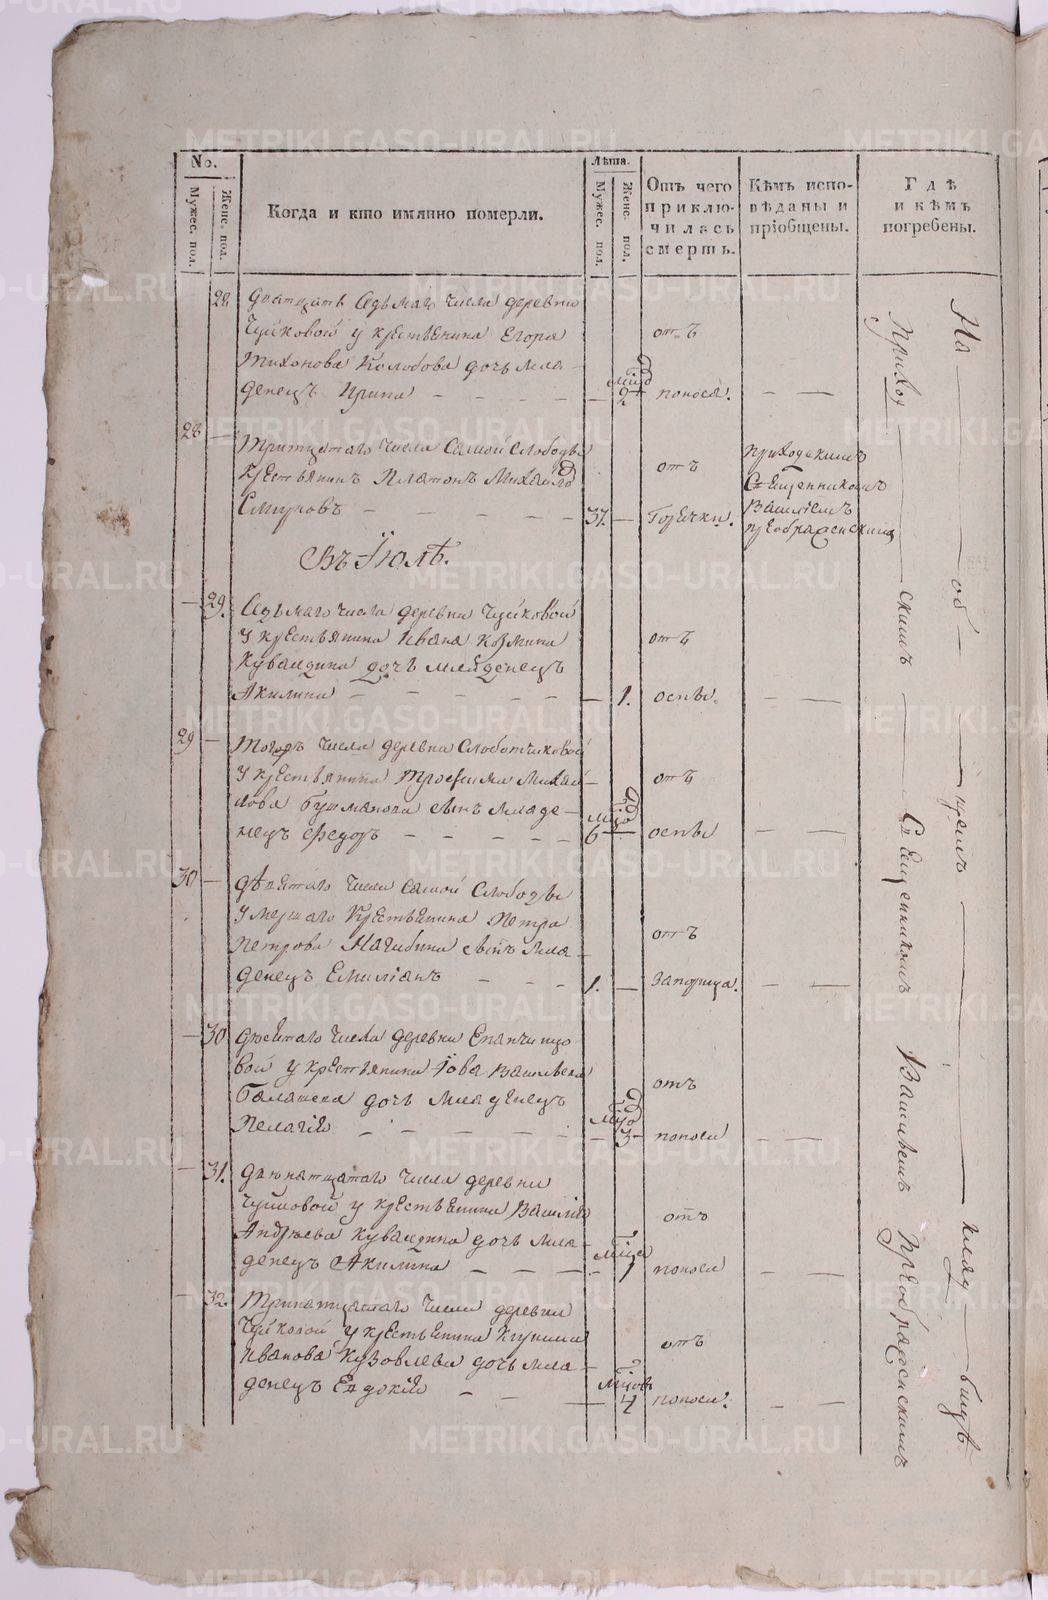 No.
Мужес. пол.
Женс. пол.
Когда и кто имянно померли.
Лѣта.
Мужес. пол.
Женс. пол.
Отъ чего приклю-
чилась
смерть.
Кѣмъ испо-
вѣданы и
пріобщены.
Гдѣ
и кѣмъ
погребены.
28
Дватцать седьмаго числа деревни
Чуйковой у крестьянина Егора
Тихонова Колобова дочь мла-
денецъ Ирина
2
отъ
поноса.
28
Тритцатаго числа самой слободы
крестьянинъ Платонъ Михайло
Смировъ
37.
отъ
горечки.
приходскимъ
Священникомъ
Василіемъ
преображенскимъ
Въ Іюлѣ.
29.
Седьмаго числа деревни Чуйковой
у крестьянина Ивана Козмина
Кувалдина дочь младенецъ
Акилина
1.
отъ
оспы.
29
Тогожъ числа деревни Слободчиковой
у крестьянина Трофима Михаи-
лова Бушманова сынъ младе-
нецъ Федоръ
6
отъ
оспы
30
Девятаго числа самой слободы
умершаго крестьянина Петра
Петрова Нагибина сынъ мла-
денецъ Емиліанъ
1.
отъ
запорца.
30
девятаго числа деревни Епанчинцо-
вой у крестьянина Іова Васильева
Балашева дочь младенецъ
Пелагія
3
отъ
поноса
31.
Двенатцатаго числа деревни
Чуйковой у крестьянина Василія
Андрѣева Кувалдина дочь мла-
денецъ Акилина
1
отъ
поноса
32.
Тринатцатаго числа деревни
Чуйковой у крестьянина
Иванова Кузовлева дочь мла-
денецъ Евдокія
4
отъ
поноса.
На об щемъ клад бищѣ
Приход скимъ Священникомъ Василіемъ Преображенскимъ
METRIKI.GASO-URAL.RU